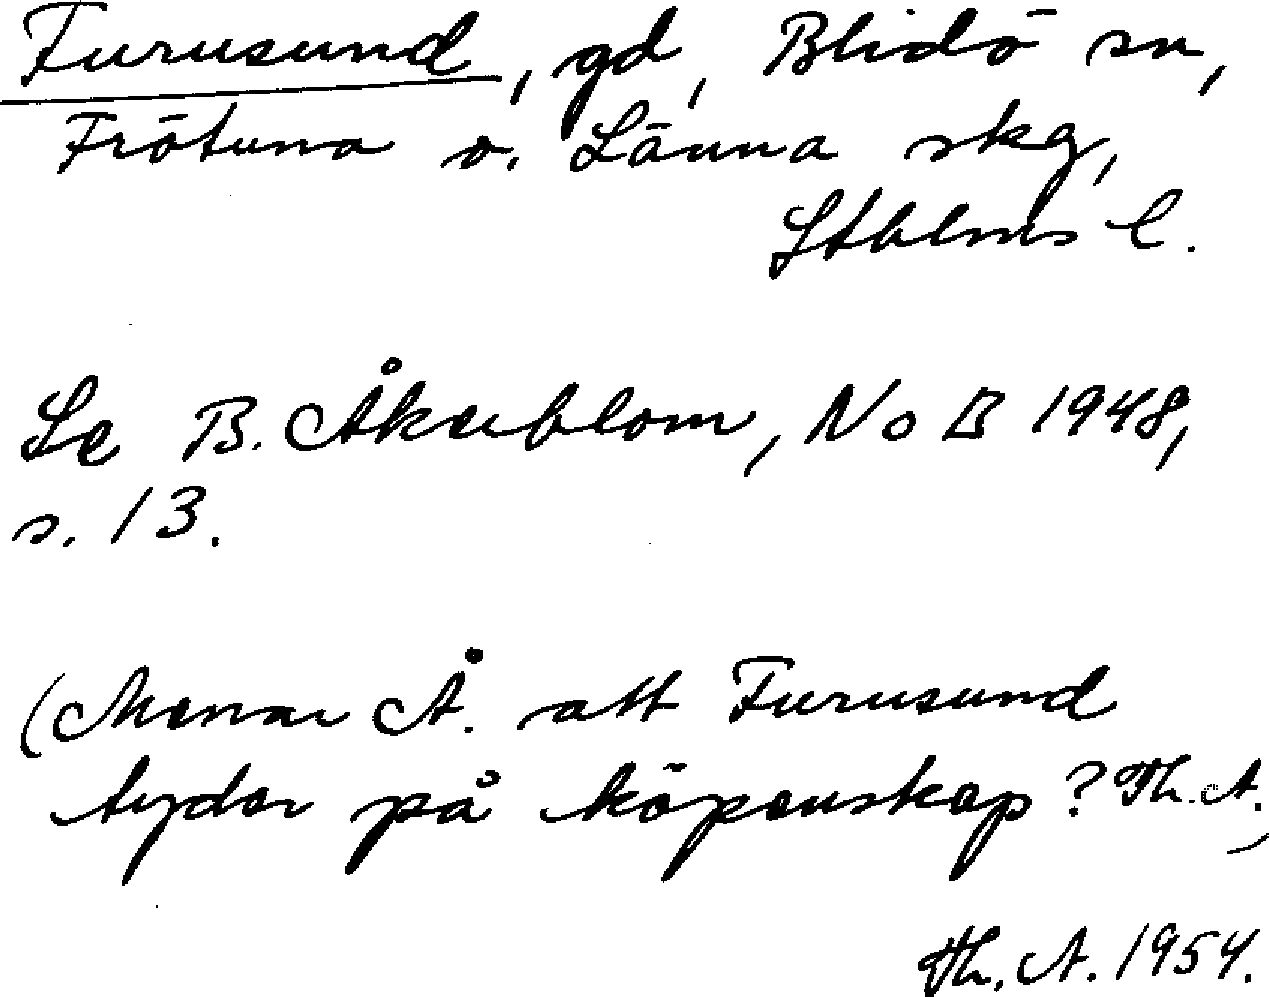 Furusund, gd, Blidö sn,
Frötuna o. Länna skg,
Sthlms l.
Se B. Åkerblom, NoB 1948,
s. 13.
(Menar Å. att Furusund
tyder på köpenskap? Th. A.)
Th. A. 1954.